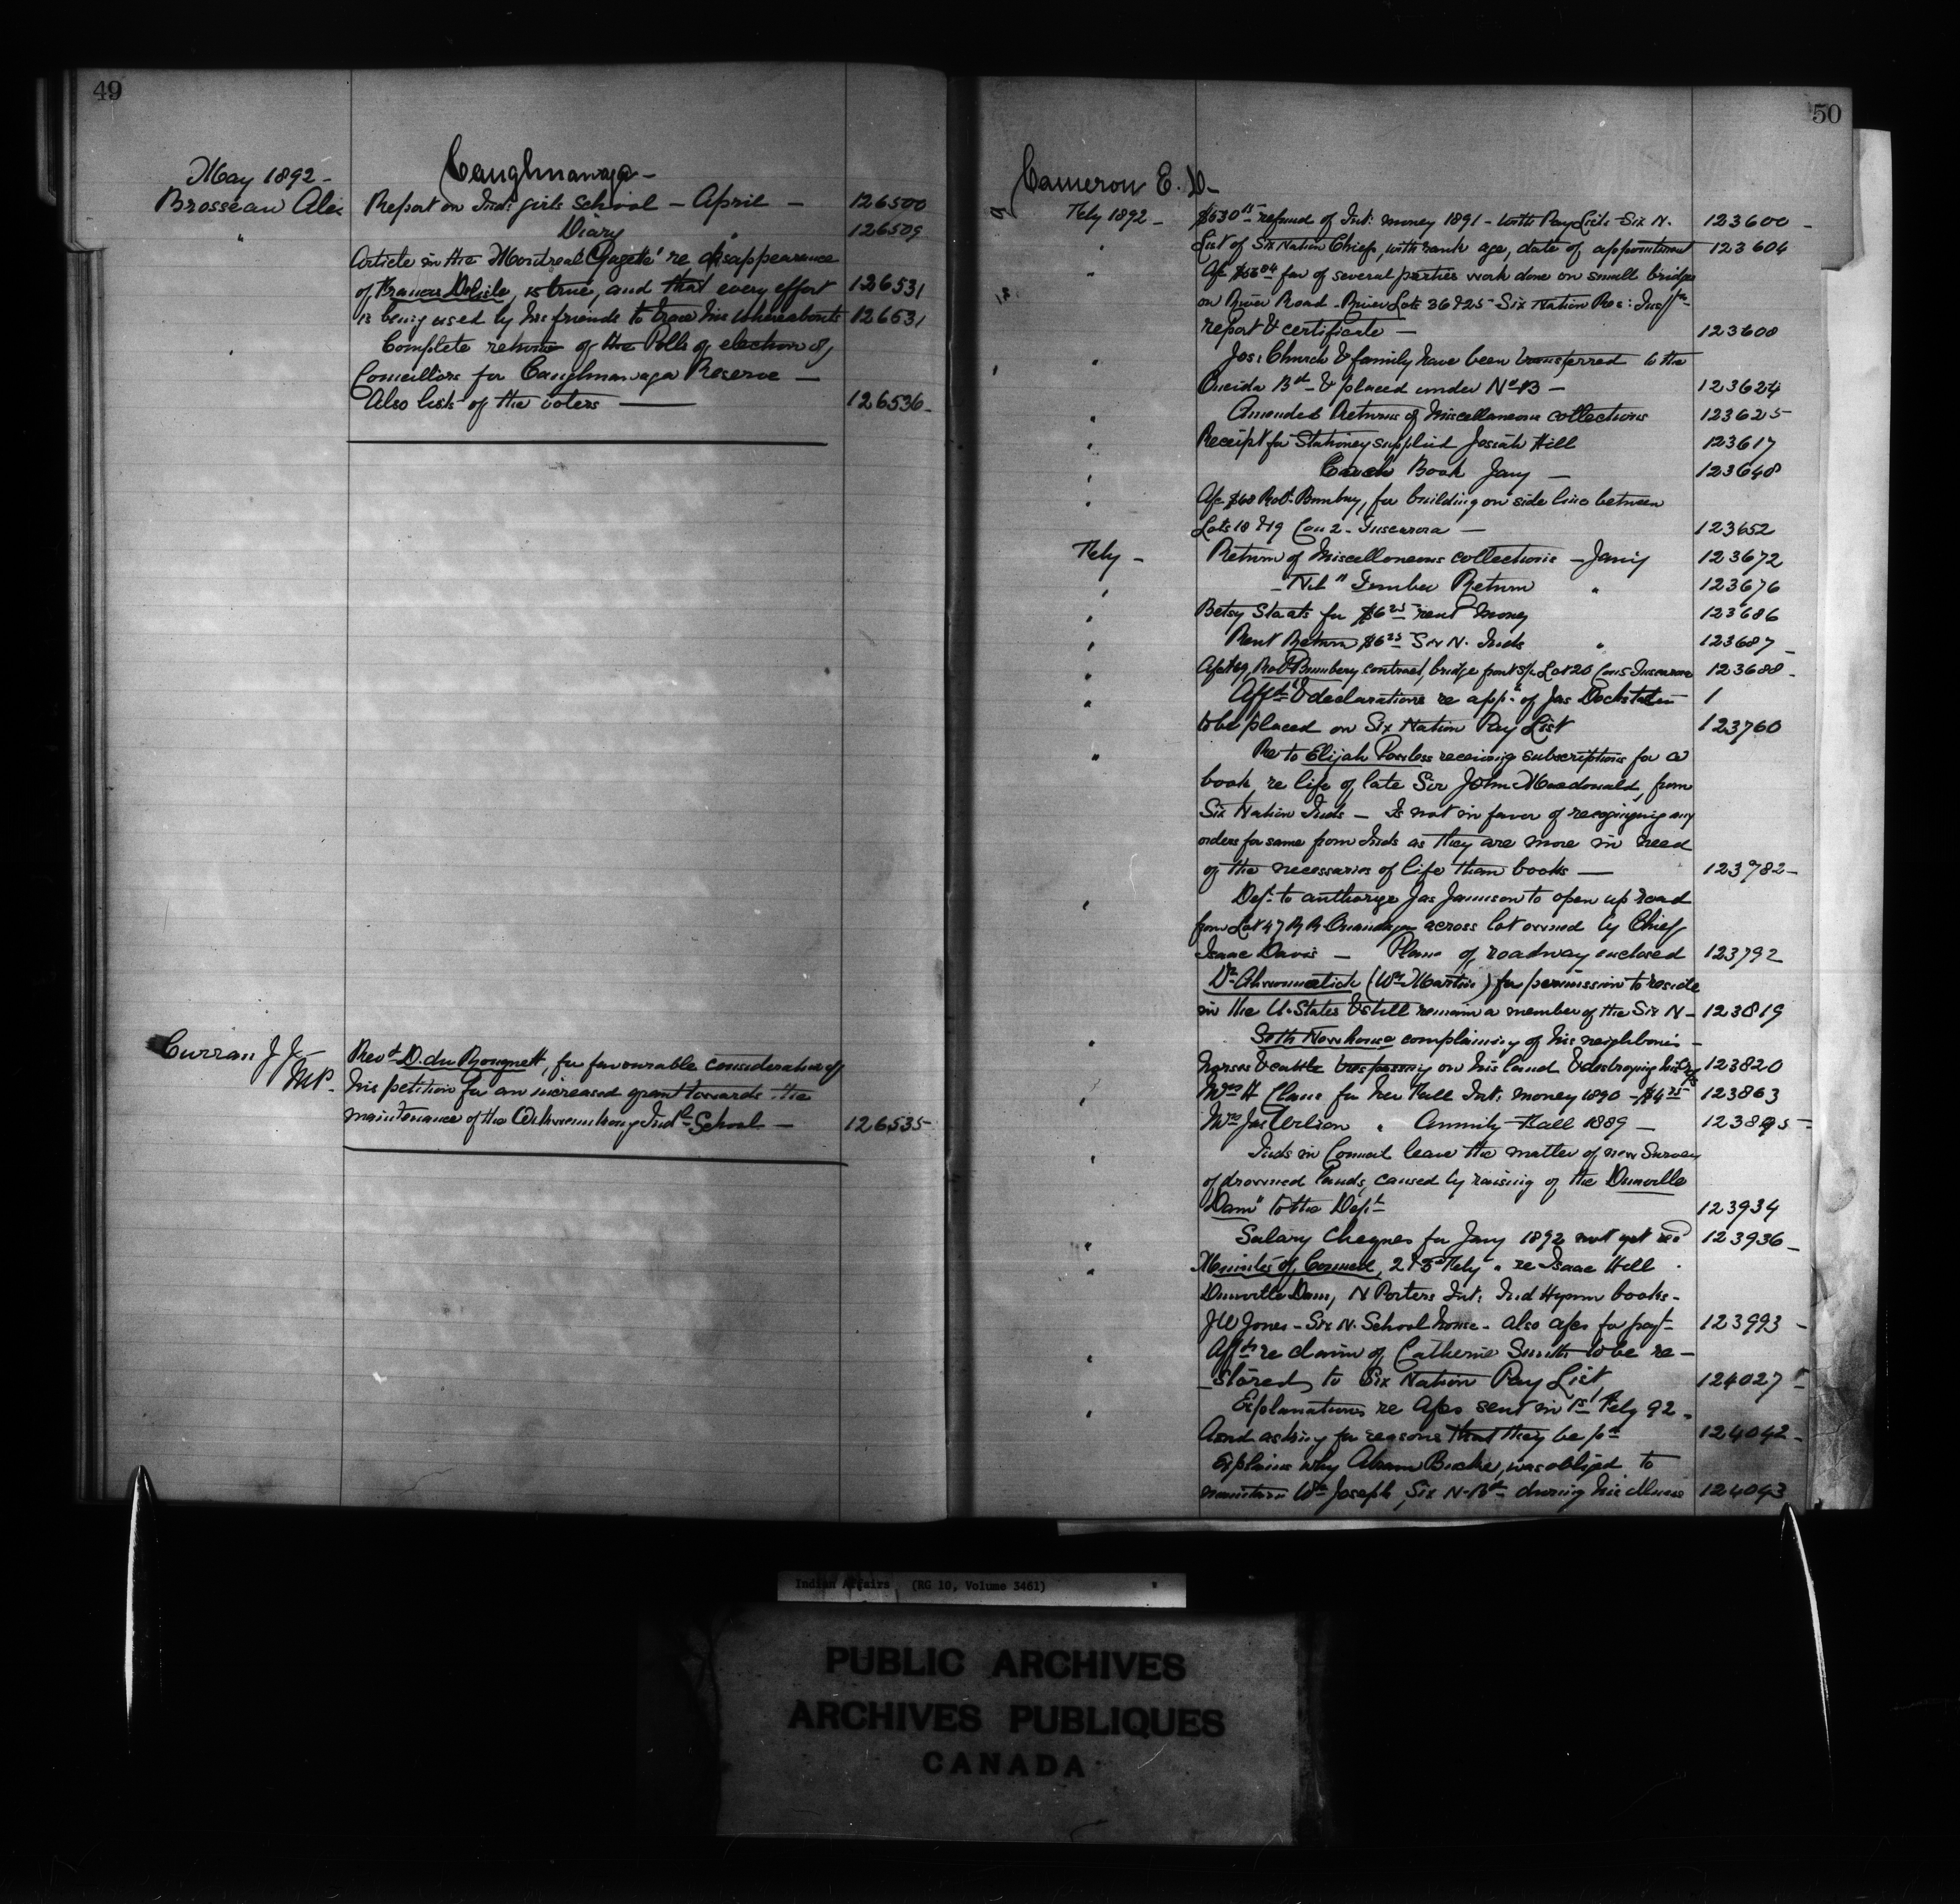 49
May 1892 -
Caughnawaga -
Brosseau Alex Report on Inds girls School - April - 126500
" Diary " 126509
Article in the Montreal 'Gazette' re disappearance
of Francis Delisle, is true, and that every effort 126531
is being used by his friends to trace his whereabouts 126531
" Complete returns of the Polls of election of
Councillors for Caughnawaga Reserve -
Also lists of the voters — 126536-
Curran J J - Revd D. du Rouquett, for favourable consideration of
MP. his petition for an increased grant towards the
maintenance of the Indl School - 126535
50
Cameron E. D-
Feby 1892 - refund of Int: money 1891 - with Pay List - Six N. 123600 -
" List of Six Nation Chiefs, with rank age, date of appointment 123604
" of several parties work done on small bridges
on River Road - River Lots 36 & 25 - Six Nation Res:
report & certificate - 123608
" Jos: Church & family have been transferred to the
Oneida Bd - & placed under No 13 - 123624
" Amended Returns of Miscellaneous collections 123625
" Receipt for Stationery supplied Josiah Hill 123617
" Book Jany - 123648
" for building on side line between
Lots 18 & 19 Con 2 - Tuscarora - 123652
Feby - Return of Miscellaneous collections - Jany 123672
" - Nil " Timber Return " 123676
" Betsy Staats for $6 25 rent money 123686
" Rent Return $6 25 Six N. Inds " 123687 -
" contract, bridge front Lot 20 Con 5 Tuscarora 123688 -
" Affts & declarations re appn of Jas 1
to be placed on Six Nation Pay List 123760
" Re to Elijah Powless receiving subscriptions for a
book, re life of late Sir John Macdonald, from
Six Nation Inds - Is not in favor of recognizing any
orders for same from Inds as they are more in need
of the necessaries of life than books — 123782 -
" Dept to authorize Jas Jamieson to open up road
from Lot 47 R R Onondaga across lot owned by Chief
Isaac Davis - Plan of roadway enclosed 123792
Dr (Wm Martin) for permission to reside
in the U. States & still remain a member of the Six N - 123819
" Seth Newhouse complaining of his neighbours -
horses & cattle trespassing on his land & destroying his 123820
" Mrs H for her Fall Int: money 1890 - $4 25 123863
Mrs Jas Wilson " Annuity Fall 1889 - 123895 -
" Inds in Council leave the matter of new Survey
of drowned lands, caused by raising of the Dunnville
Dam" to the Dept 123934
" Salary Cheques for Jany 1892 not yet recd 123936 -
" Minutes of Council, 2 & 3 Feby " re Isaac Hill
Dunnville Dam, N Porters Int: Ind Hymn books -
J W Jones - Six N. School house - also for payt 123993 -
" Affts re claim of Catherine Smith to be re -
- stored to Six Nation Pay List 124027 -
" Explanations re sent in 1st Feby 92 -
and asking for reasons that they be pd 124042 -
Explains why Abram was obliged to
maintain Wm Joseph, Six N - Bd during his illness 124093
Indian Affairs (RG 10, Volume 3461)
PUBLIC ARCHIVES
ARCHIVES PUBLIQUES
CANADA